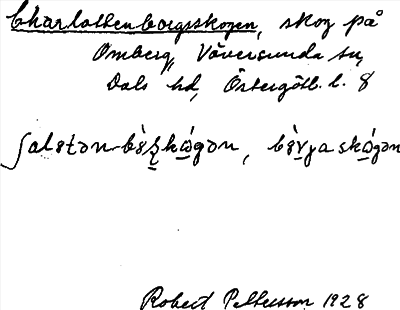 Charlottenborgsskogen, skog på
Omberg, Väversunda sn,
Dals hd, Östergötl. l. 8
ʃalɛtən-bɛ̀ʂkǿgən, bɛ̀rjaskǿgən
Robert Pettersson 1928